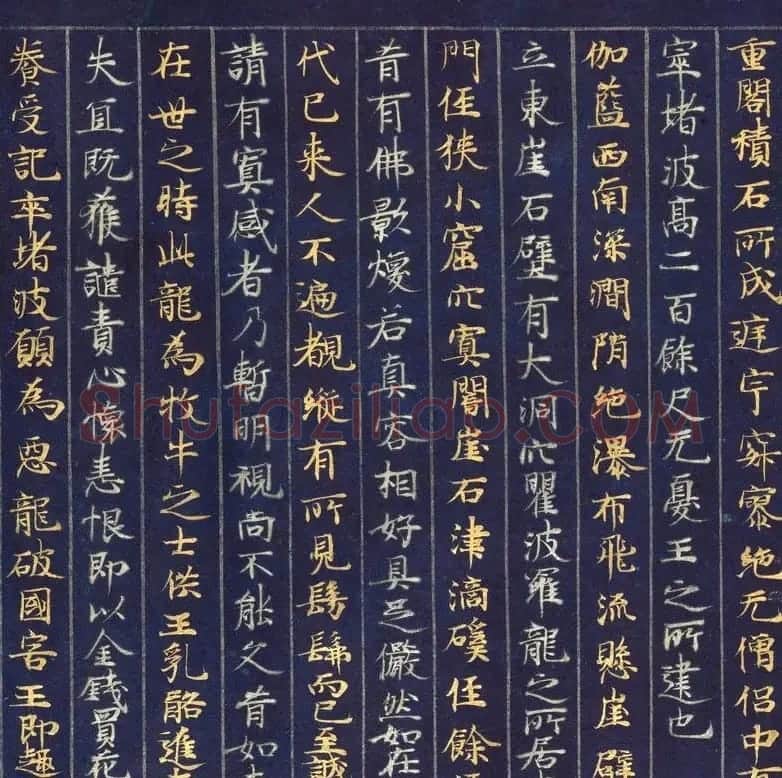 重閣積石所成遅宁寂寥絶无僧侣中有
窣堵波髙二百餘尺无憂王之所建也
伽藍西南深澗陗絶瀑布飛流懸崖壁
立東崖石壁有大洞穴瞿波羅龍之所居
門徑狹小窟穴㝠闇崖石津滴磎徑餘
昔有佛影煥若真容相好具足儼然如在
代已来人不遍覩縱有所見髣髴而已至誠
請有㝠感者乃暫明視尚不能久昔如来
在世之時此龍為牧牛之士供王乳酪進
失宜既獲譴責心懷恚恨即以金錢買花
養受記窣堵波願為惡龍破國害王即趣
Shufaziliao.COM